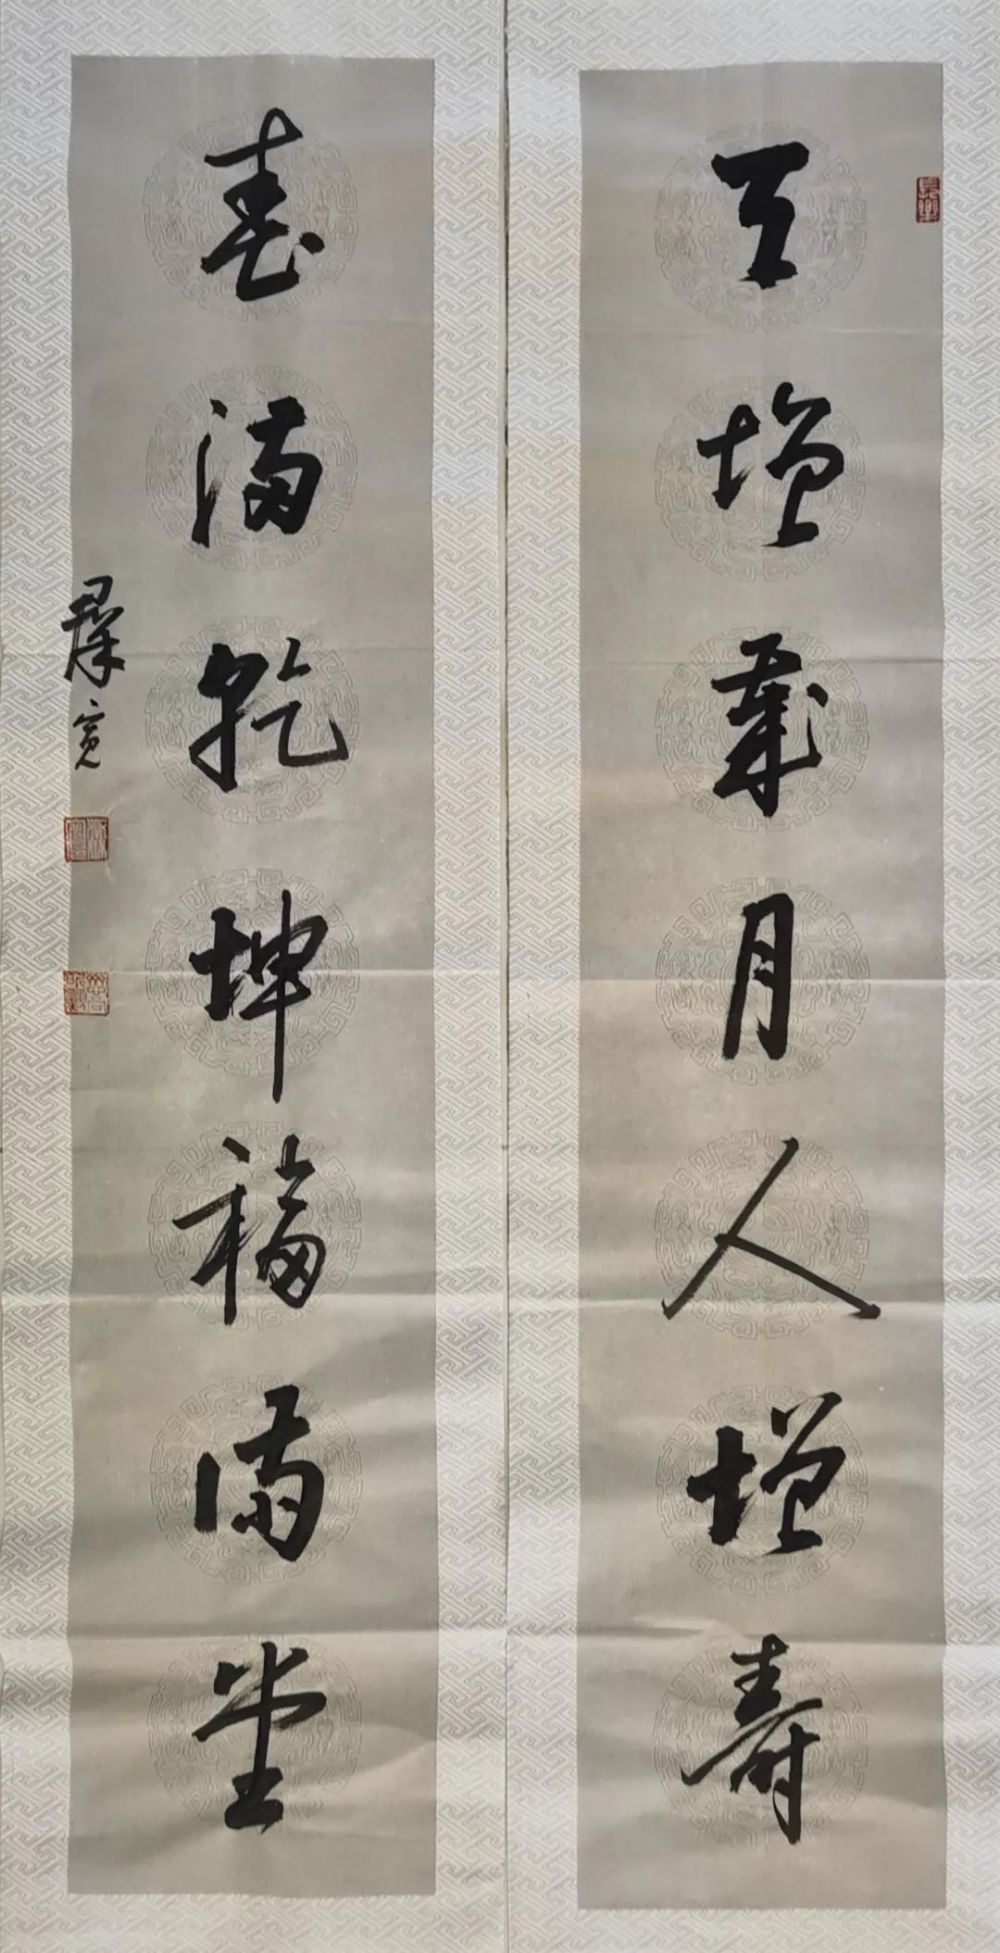 長樂
天增歲月人增壽
春滿乾坤福滿堂